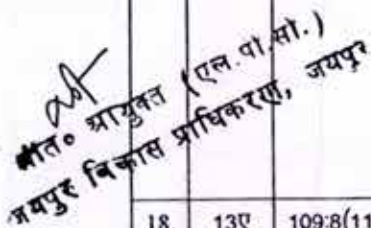 अति० आयुक्त (एल.पी.सी.)
जयपुर विकास प्राधिकरण, जयपुर
18 13ए 109:8(11